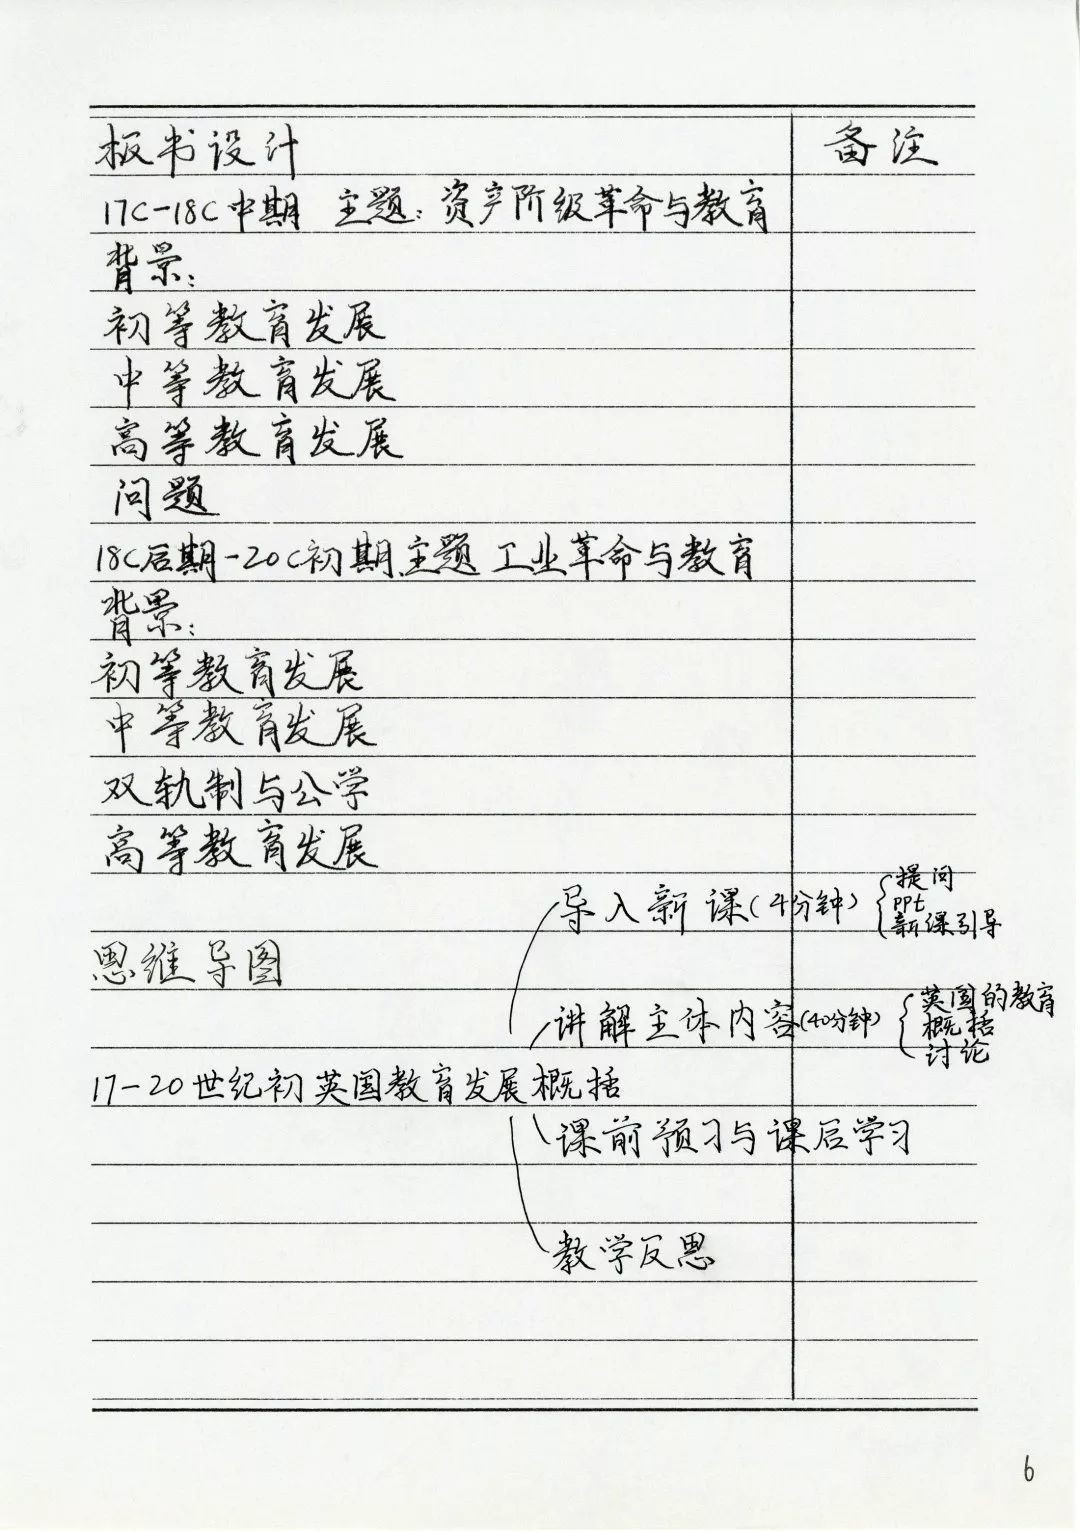 板书设计
备注
17C-18C中期 主题：资产阶级革命与教育
背景：
初等教育发展
中等教育发展
高等教育发展
问题
18C后期-20C初期主题 工业革命与教育
背景：
初等教育发展
中等教育发展
双轨制与公学
高等教育发展
导入新课(4分钟)
提问
ppt
新课引导
思维导图
讲解主体内容(40分钟)
英国的教育
概括
讨论
17-20世纪初英国教育发展概括
课前预习与课后学习
教学反思
6